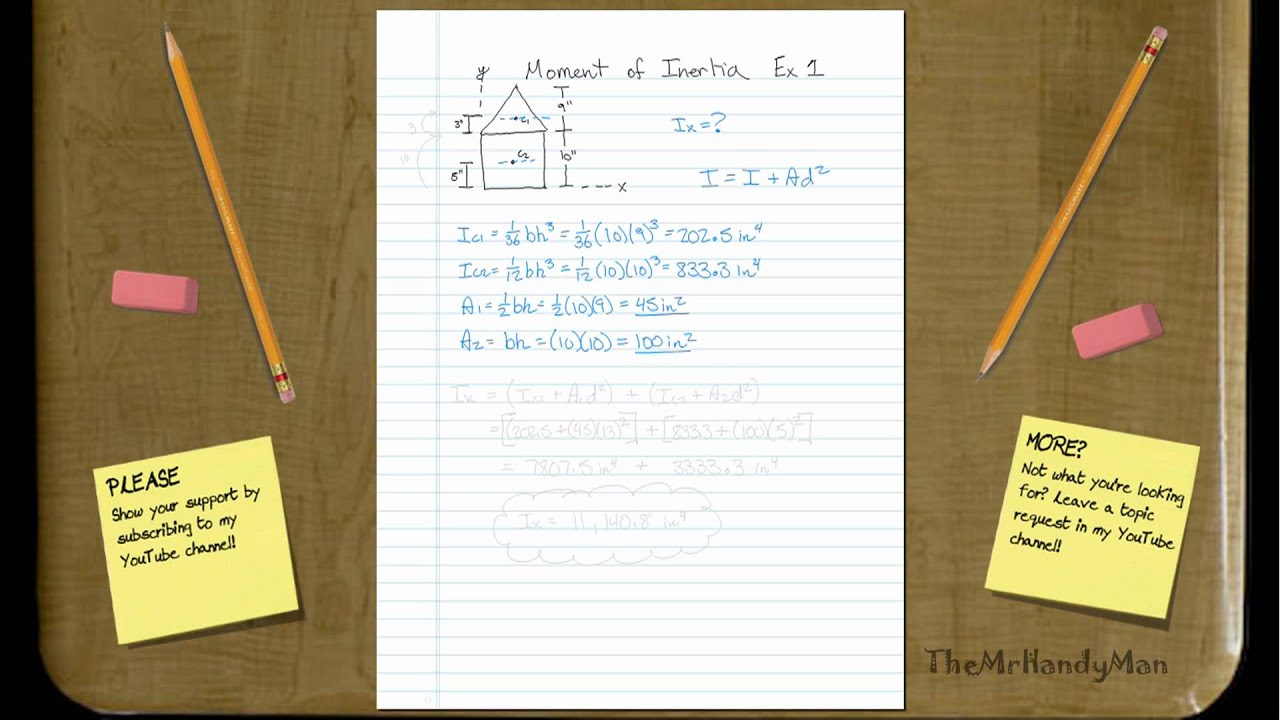 Moment of Inertia Ex 1
y
9"
3"
C1
3
10
C2
10"
5"
x
Ix = ?
I = I + Ad²
Ic1 = 1/36 bh³ = 1/36 (10)(9)³ = 202.5 in⁴
Ic2 = 1/12 bh³ = 1/12 (10)(10)³ = 833.3 in⁴
A1 = 1/2 bh = 1/2 (10)(9) = 45 in²
A2 = bh = (10)(10) = 100 in²
Ix = (Ic1 + A1d²) + (Ic2 + A2d²)
= [(202.5 + (45)(13)²] + [833.3 + (100)(5)²]
= 7807.5 in⁴ + 3333.3 in⁴
Ix = 11,140.8 in⁴
PLEASE
Show your support by
subscribing to my
YouTube channel!
MORE?
Not what you're looking
for? Leave a topic
request in my YouTube
channel!
TheMrHandyMan